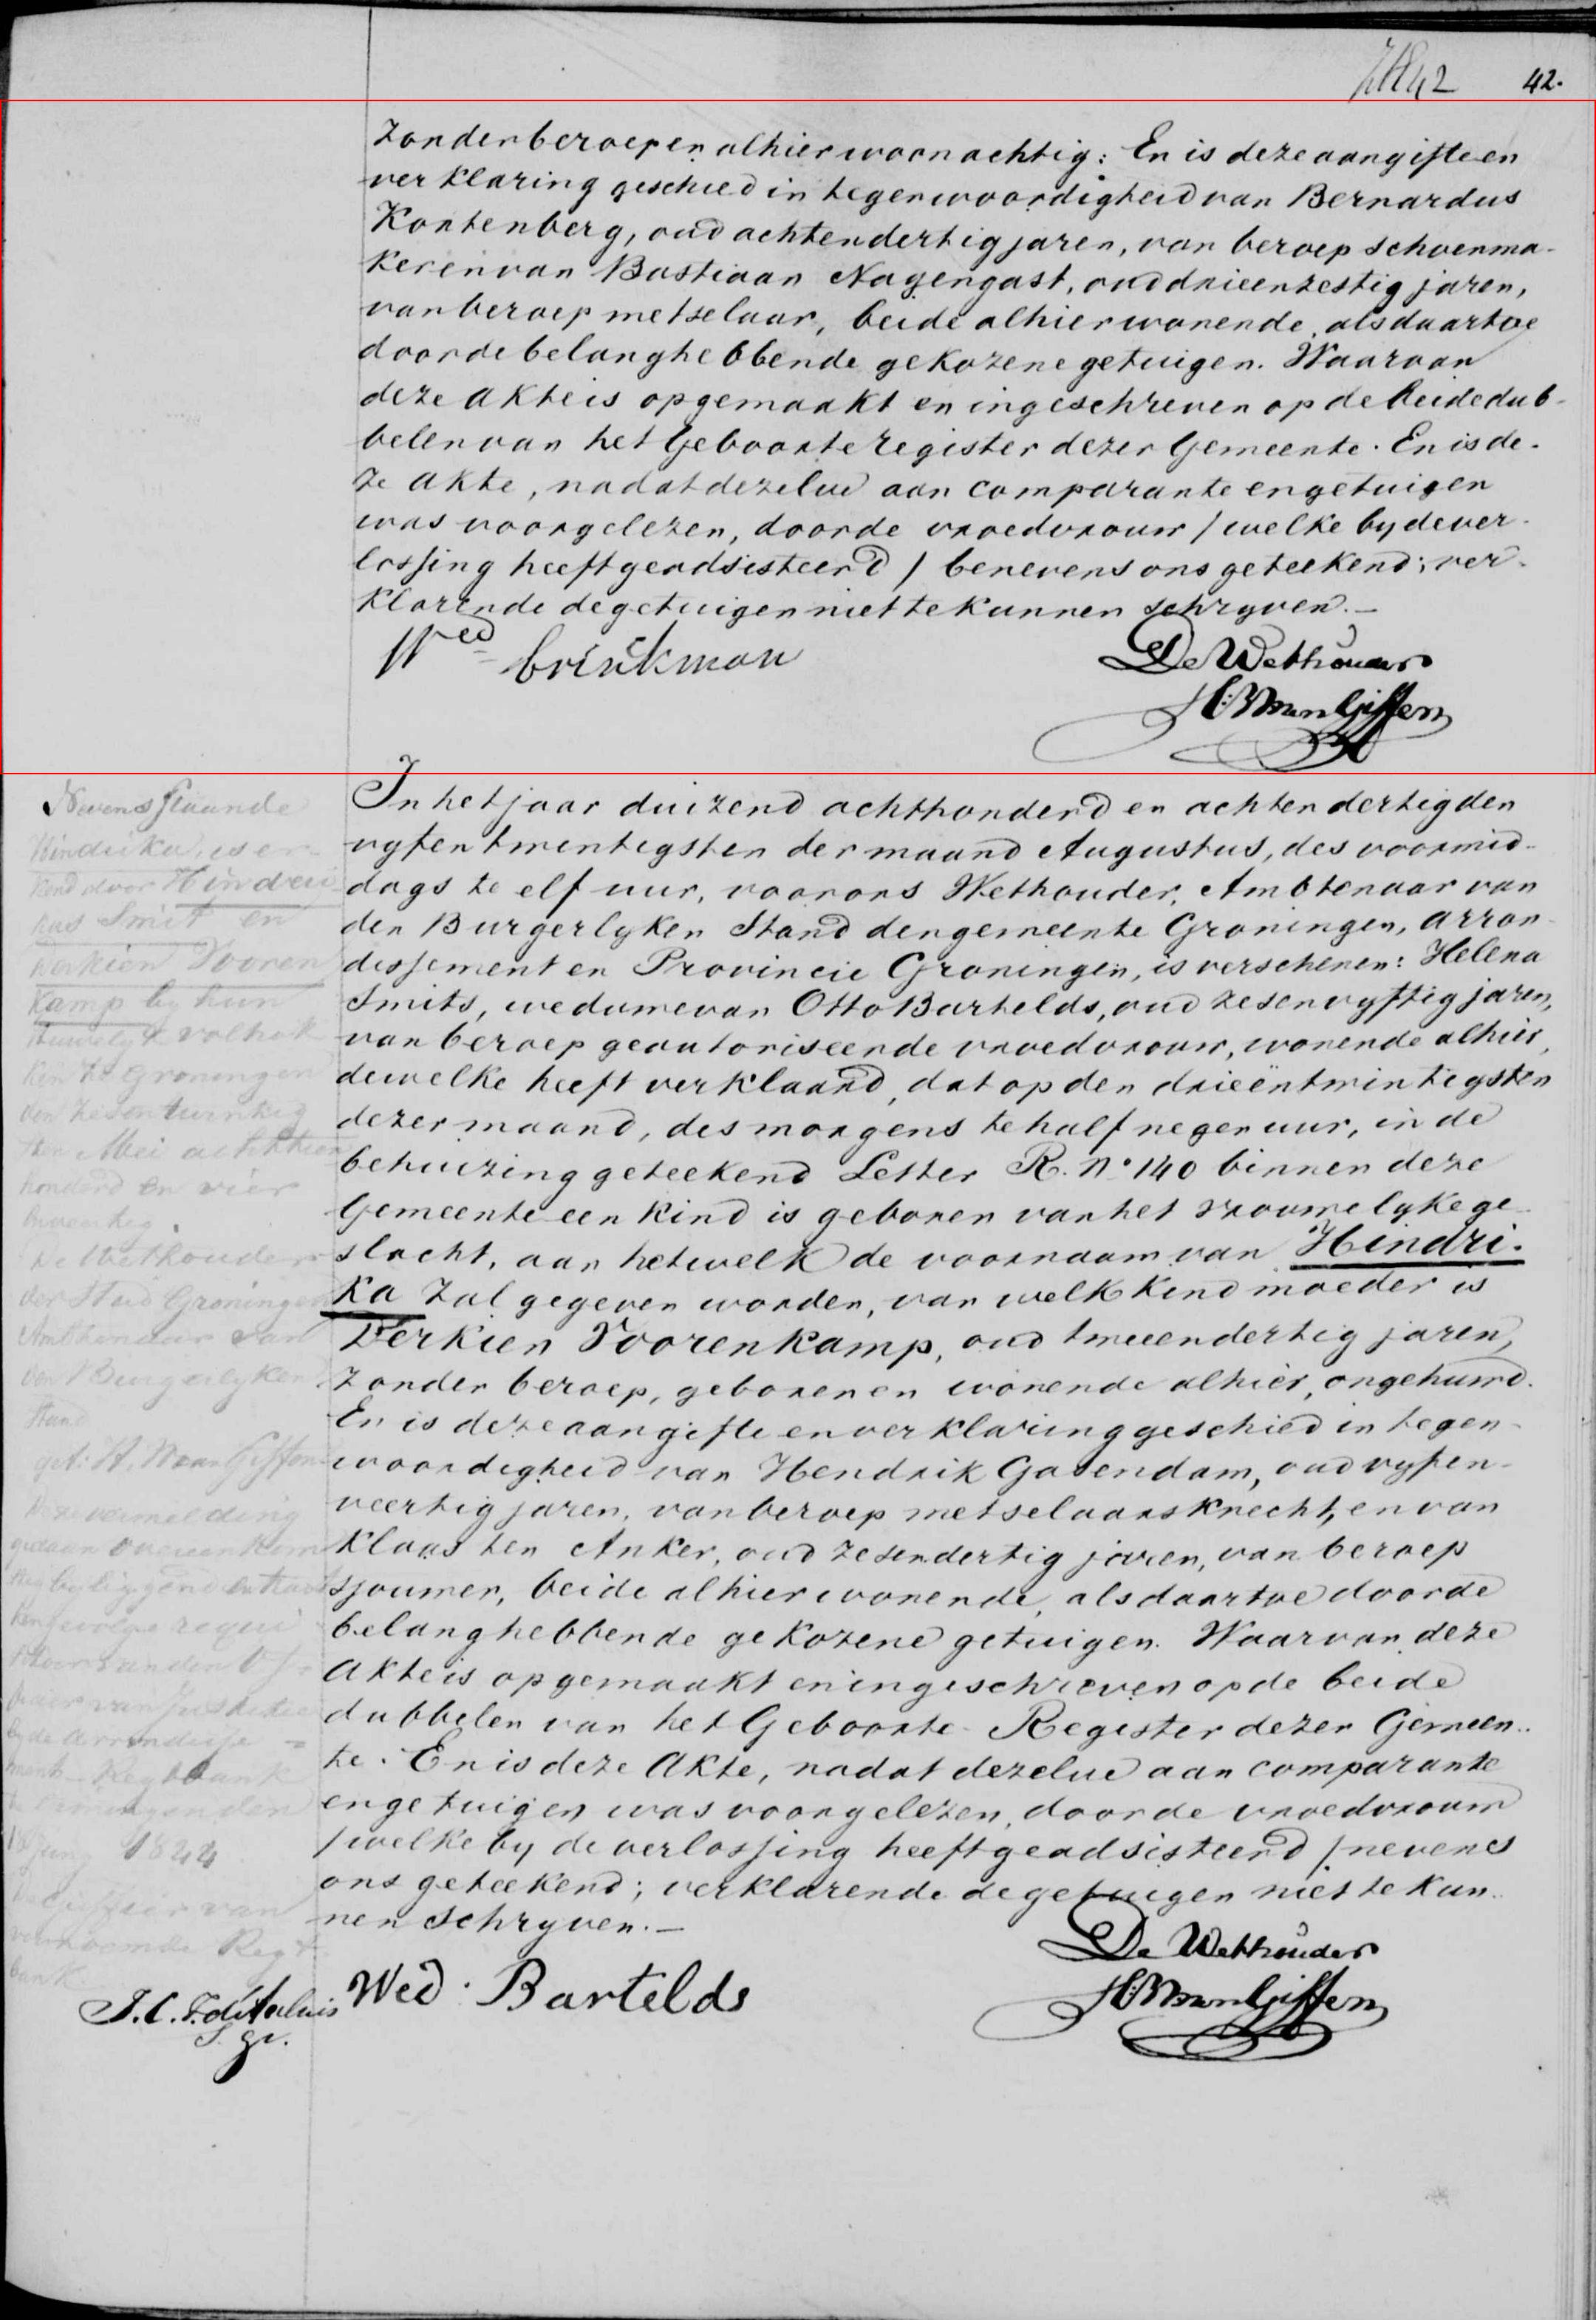 42.
zonder beroep en alhier woonachtig: En is deze aangifte en
verklaring geschied in tegenwoordigheid van Bernardus
Kortenberg, oud achtendertig jaren, van beroep schoenma-
ker en van Bastiaan Nagengast, oud drieenzestig jaren,
van beroep metselaar, beide alhier wonende, als daartoe
door de belanghebbende gekozene getuigen. Waarvan
deze Akte is opgemaakt en ingeschreven op de beide dub-
belen van het Geboorte Register dezer Gemeente. En is de-
ze Akte, nadat dezelve aan comparante en getuigen
was voorgelezen, door de vroedvrouw / welke by de ver-
lossing heeft geadsisteerd / benevens ons geteekend; ver-
klarende de getuigen niet te kunnen schryven. –
Wed brinkman
De Wethouder
H:W:van Giffen
In het jaar duizend achthonderd en achtendertig den
vyfentwentigsten der maand Augustus, des voormid-
dags te elf uur, voor ons Wethouder, Ambtenaar van
den Burgerlyken Stand der gemeente Groningen, arron-
dissement en Provincie Groningen, is verschenen: Helena
Smits, weduwe van Otto Bartelds, oud zesenvyftig jaren,
van beroep geautoriseerde vroedvrouw, wonende alhier,
dewelke heeft verklaard, dat op den drieëntwintigsten
dezer maand, des morgens te half negen uur, in de
behuizing geteekend Letter R. No 140 binnen deze
Gemeente een kind is geboren van het vrouwelyke ge-
slacht, aan hetwelk de voornaam van Hindri-
ka zal gegeven worden, van welk kind moeder is
Derkien Voorenkamp, oud tweeendertig jaren,
zonder beroep, geboren en wonende alhier, ongehuwd.
En is deze aangifte en verklaring geschied in tegen-
woordigheid van Hendrik Gosendam, oud vyfen-
veertig jaren, van beroep metselaarsknecht, en van
Klaas ten Anker, oud zesendertig jaren, van beroep
sjouwer, beide alhier wonende, als daartoe door de
belanghebbende gekozene getuigen. Waarvan deze
Akte is opgemaakt en ingeschreven op de beide
dubbelen van het Geboorte Register dezer Gemeen-
te. En is deze Akte, nadat dezelve aan comparante
en getuigen was voorgelezen, door de vroedvrouw
/ welke by de verlossing heeft geadsisteerd / nevens
ons geteekend; verklarende de getuigen niet te kun-
nen schryven. –
Wed. Bartelds
De Wethouder
H:W:van Giffen
Nevensstaande
Hindrika is er-
kend door Hindri
kus Smit en
Derkien Vooren
kamp by hun
Huwelyk voltrok
ken te Groningen
den zesentwintig
sten Mei achttien
honderd en vier
en veertig.
De Wethouder
der Stad Groningen
Ambtenaar van
den Burgerlyken
Stand
get: H. W van Giffen
Deze vermelding
gedaan overeenkom
bank
1844